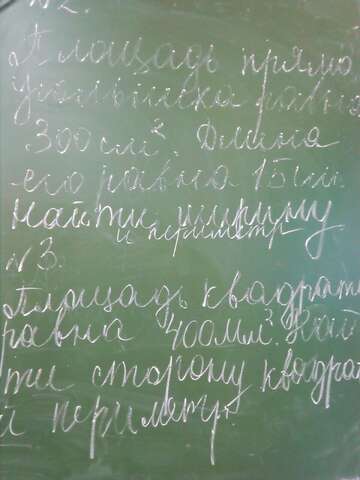 №2.
Площадь прямо
угольника равна
300см². Длина
его равна 15см.
Найти ширину
и периметр
№3.
Площадь квадрата
равна 400мм². Най
ти сторону квадрат
и периметр.